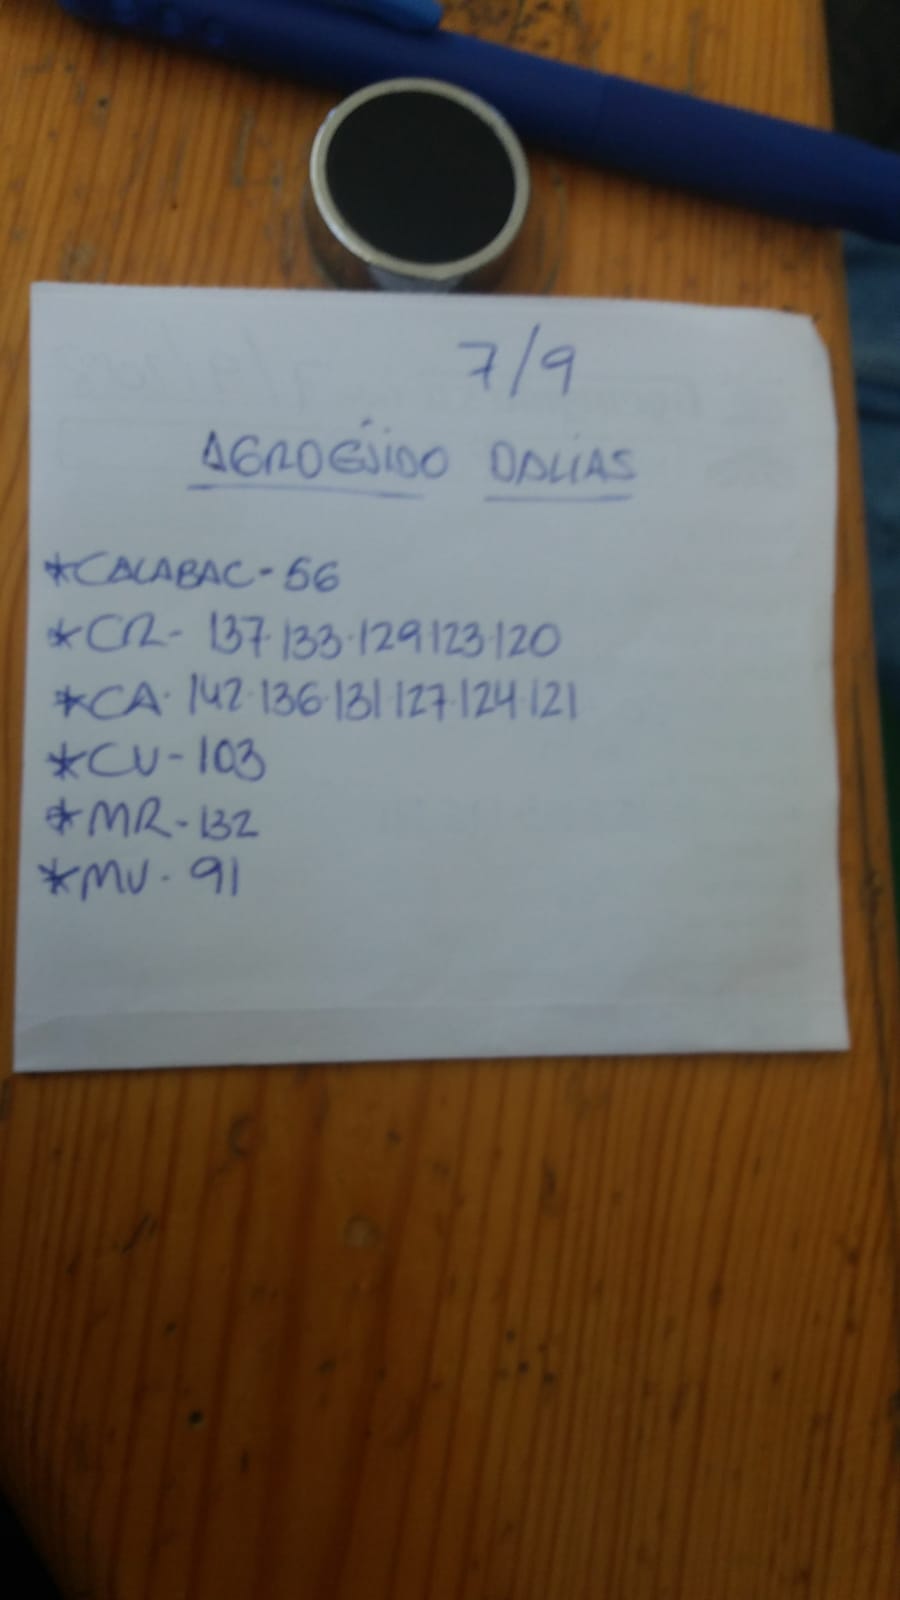 7/9
AGROEJIDO DALIAS
*CALABAC-56
*CR- 137·133·129·123·120
*CA· 142·136·131·127·124·121
*CU-103
*MR-132
*MU-91